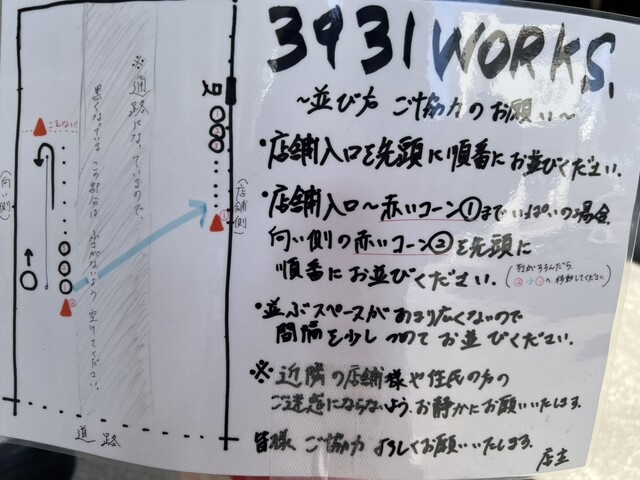 3931WORKS.
〜並び方 ご協力のお願い〜
・店舗入口を先頭に順番にお並びください。
・店舗入口〜赤いコーン①までいっぱいの場合、
向い側の赤いコーン②を先頭に
順番にお並びください。
(列が進んだら、
②→①へ移動してください)
・並ぶスペースがあまり広くないので
間隔を少しつめてお並びください。
※近隣の店舗様や住民の方の
ご迷惑にならないよう、お静かにお願いいたします。
皆様 ご協力 よろしくお願いいたします。
店主
※通路になっていますので、
この部分は ふさがないよう 空けてください。
(向い側)
(店舗側)
入口
①
②
③
①
②
道路